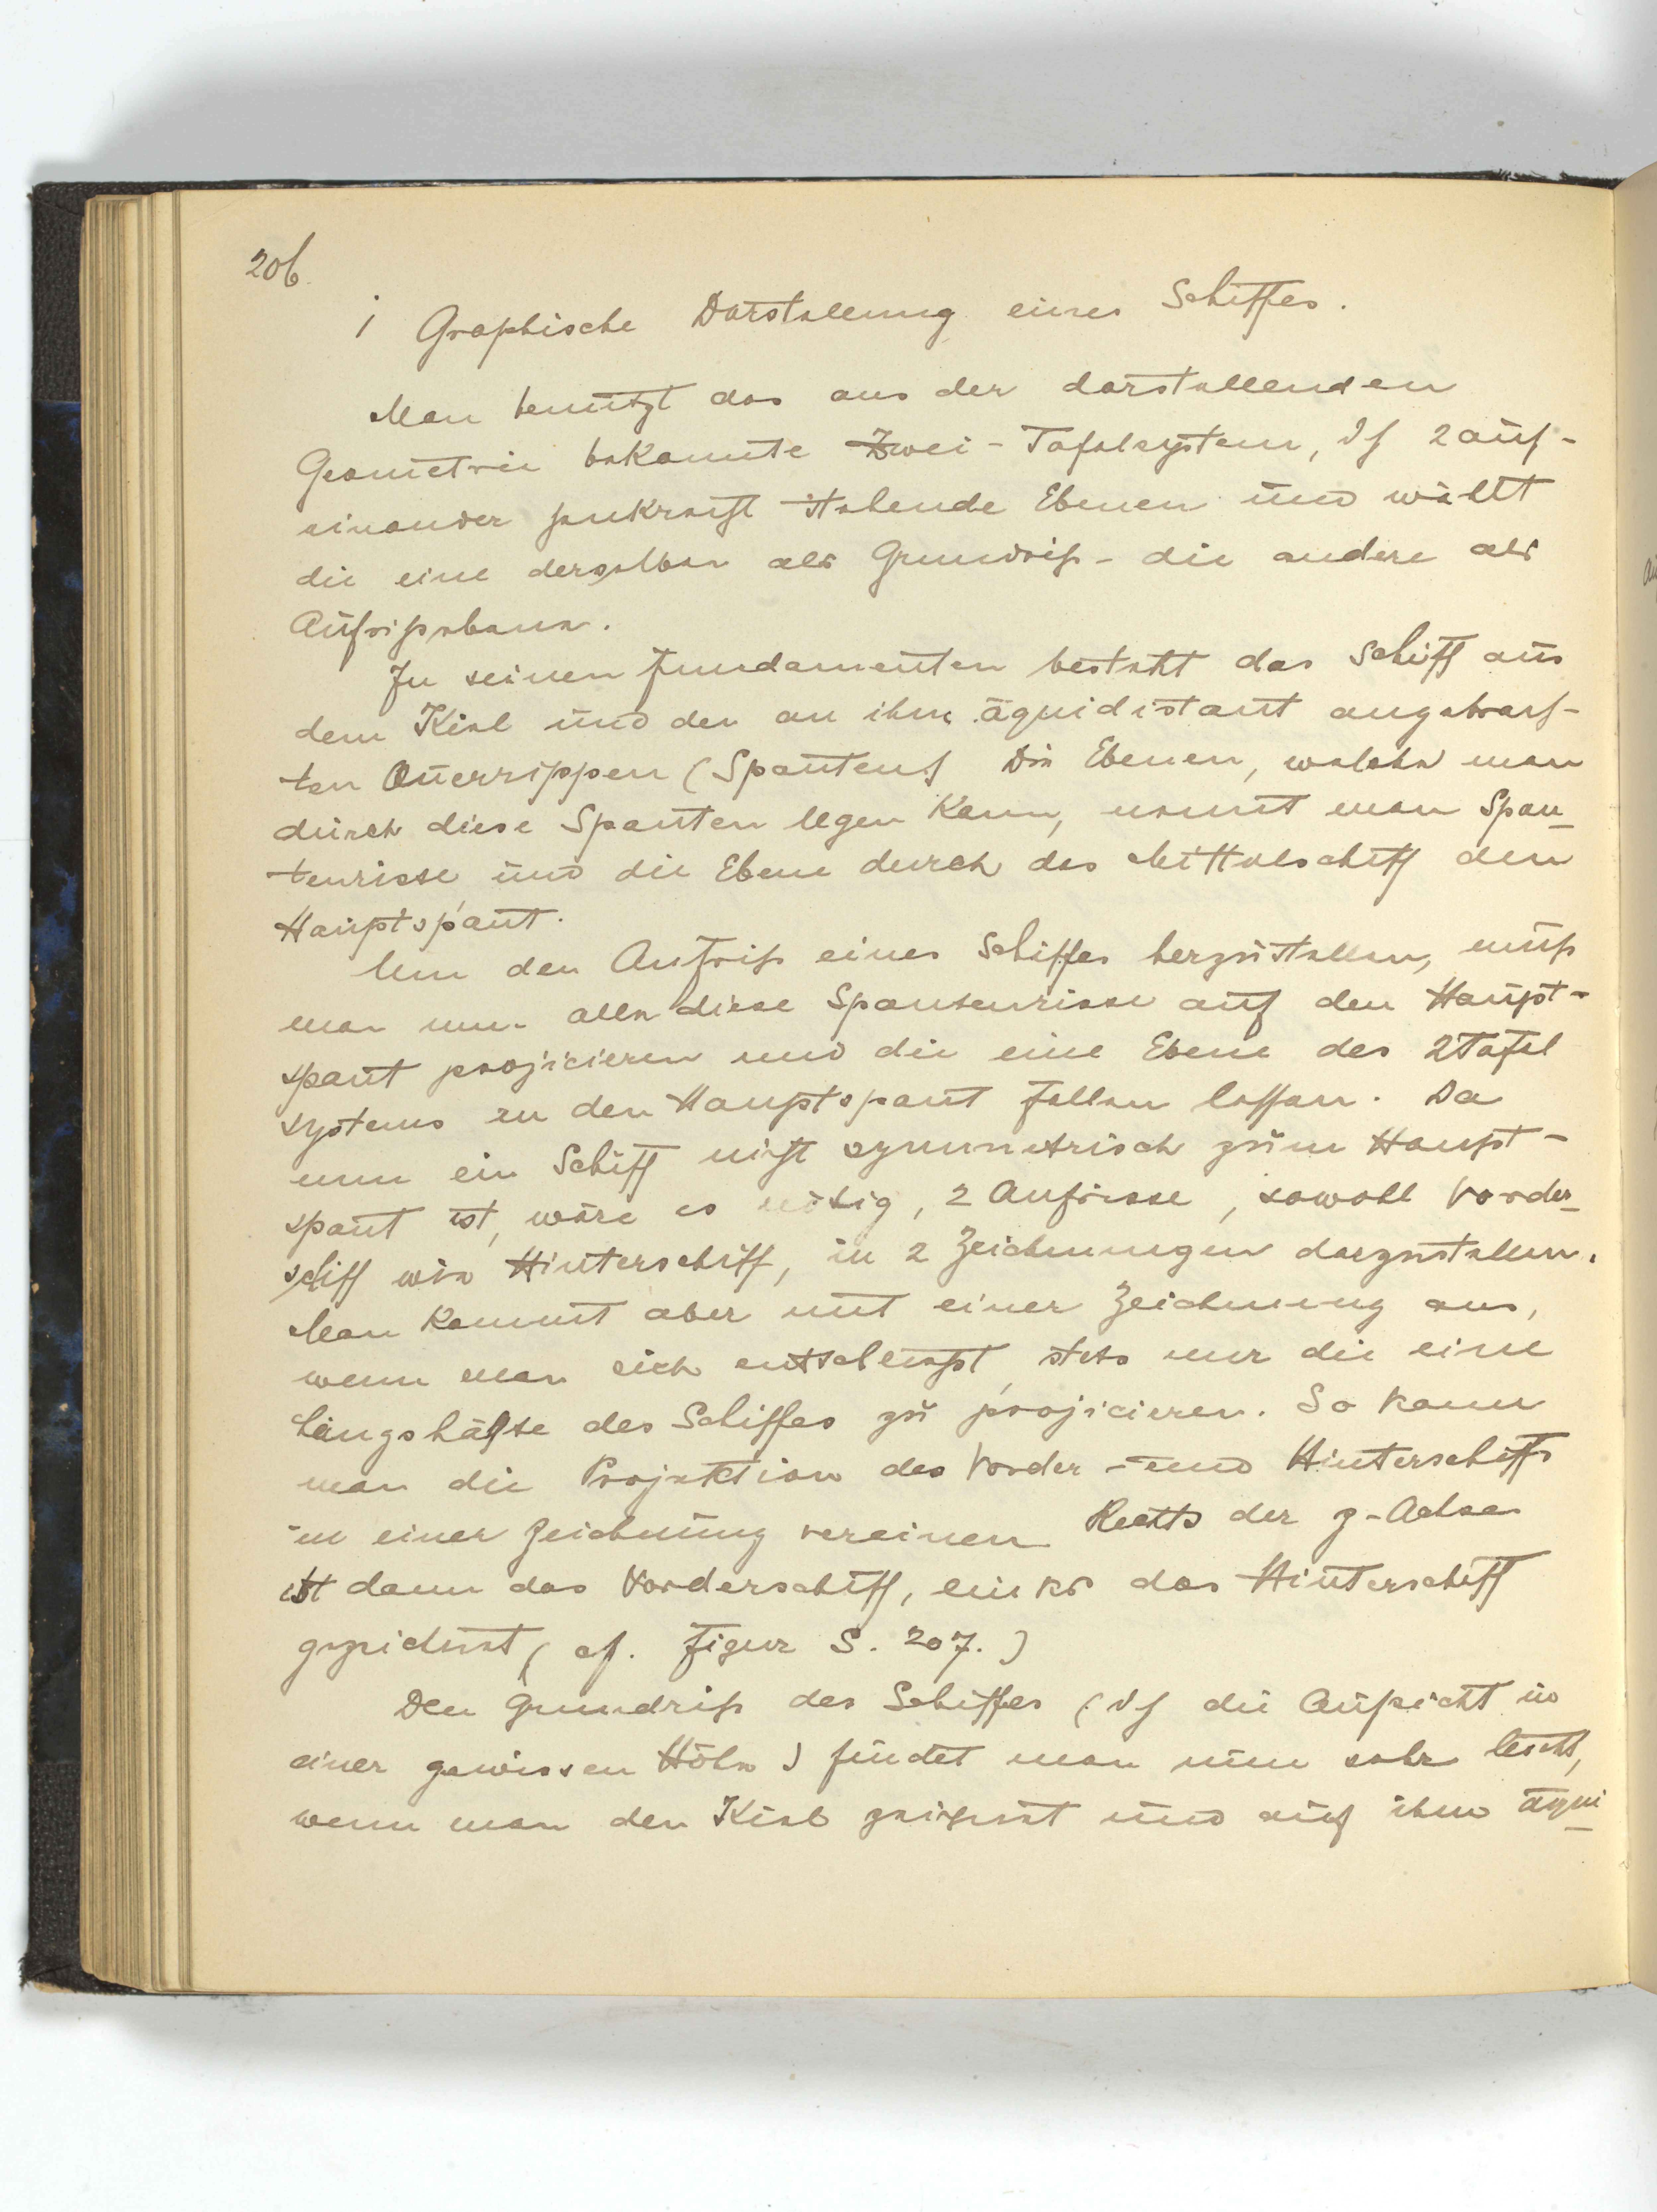 206.
1 Graphische Darstellung eines Schiffes.
Man benutzt das aus der darstellenden
Geometrie bekannte Zwei-Tafelsystem, d h 2 auf-
einander senkrecht stehende Ebenen und wählt
die eine derselben als Grundriß- die andere als
Aufrißebene.
In seinen Fundamenten besteht das Schiff aus
dem Kiel und den an ihm äquidistant angebrach-
ten Querrippen (Spanten) Die Ebenen, welche man
durch diese Spanten legen kann, nennt man Span-
tenrisse und die Ebene durch das Mittelschiff den
Hauptspant.
Um den Aufriß eines Schiffes herzustellen, muß
man nun alle diese Spantenrisse auf den Haupt-
spant projicieren und die eine Ebene des 2Tafel
systems in den Hauptspant fallen lassen. Da
nun ein Schiff nicht symmetrisch zum Haupt-
spant ist, wäre es nötig, 2 Aufrisse, sowohl Vorder-
schiff wie Hinterschiff, in 2 Zeichnungen darzustellen.
Man kommt aber mit einer Zeichnung aus,
wenn man sich entschließt, stets nur die eine
Längshälfte des Schiffes zu projicieren. So kann
man die Projektion des Vorder- und Hinterschiffs
in einer Zeichnung vereinen Rechts der z-Achse
ist dann das Vorderschiff, links das Hinterschiff
gezeichnet (cf. Figur S. 207.)
Den Grundriß des Schiffes (d h die Aufsicht in
einer gewissen Höhe) findet man nun sehr leicht,
wenn man den Kiel zeichnet und auf ihm äqui-